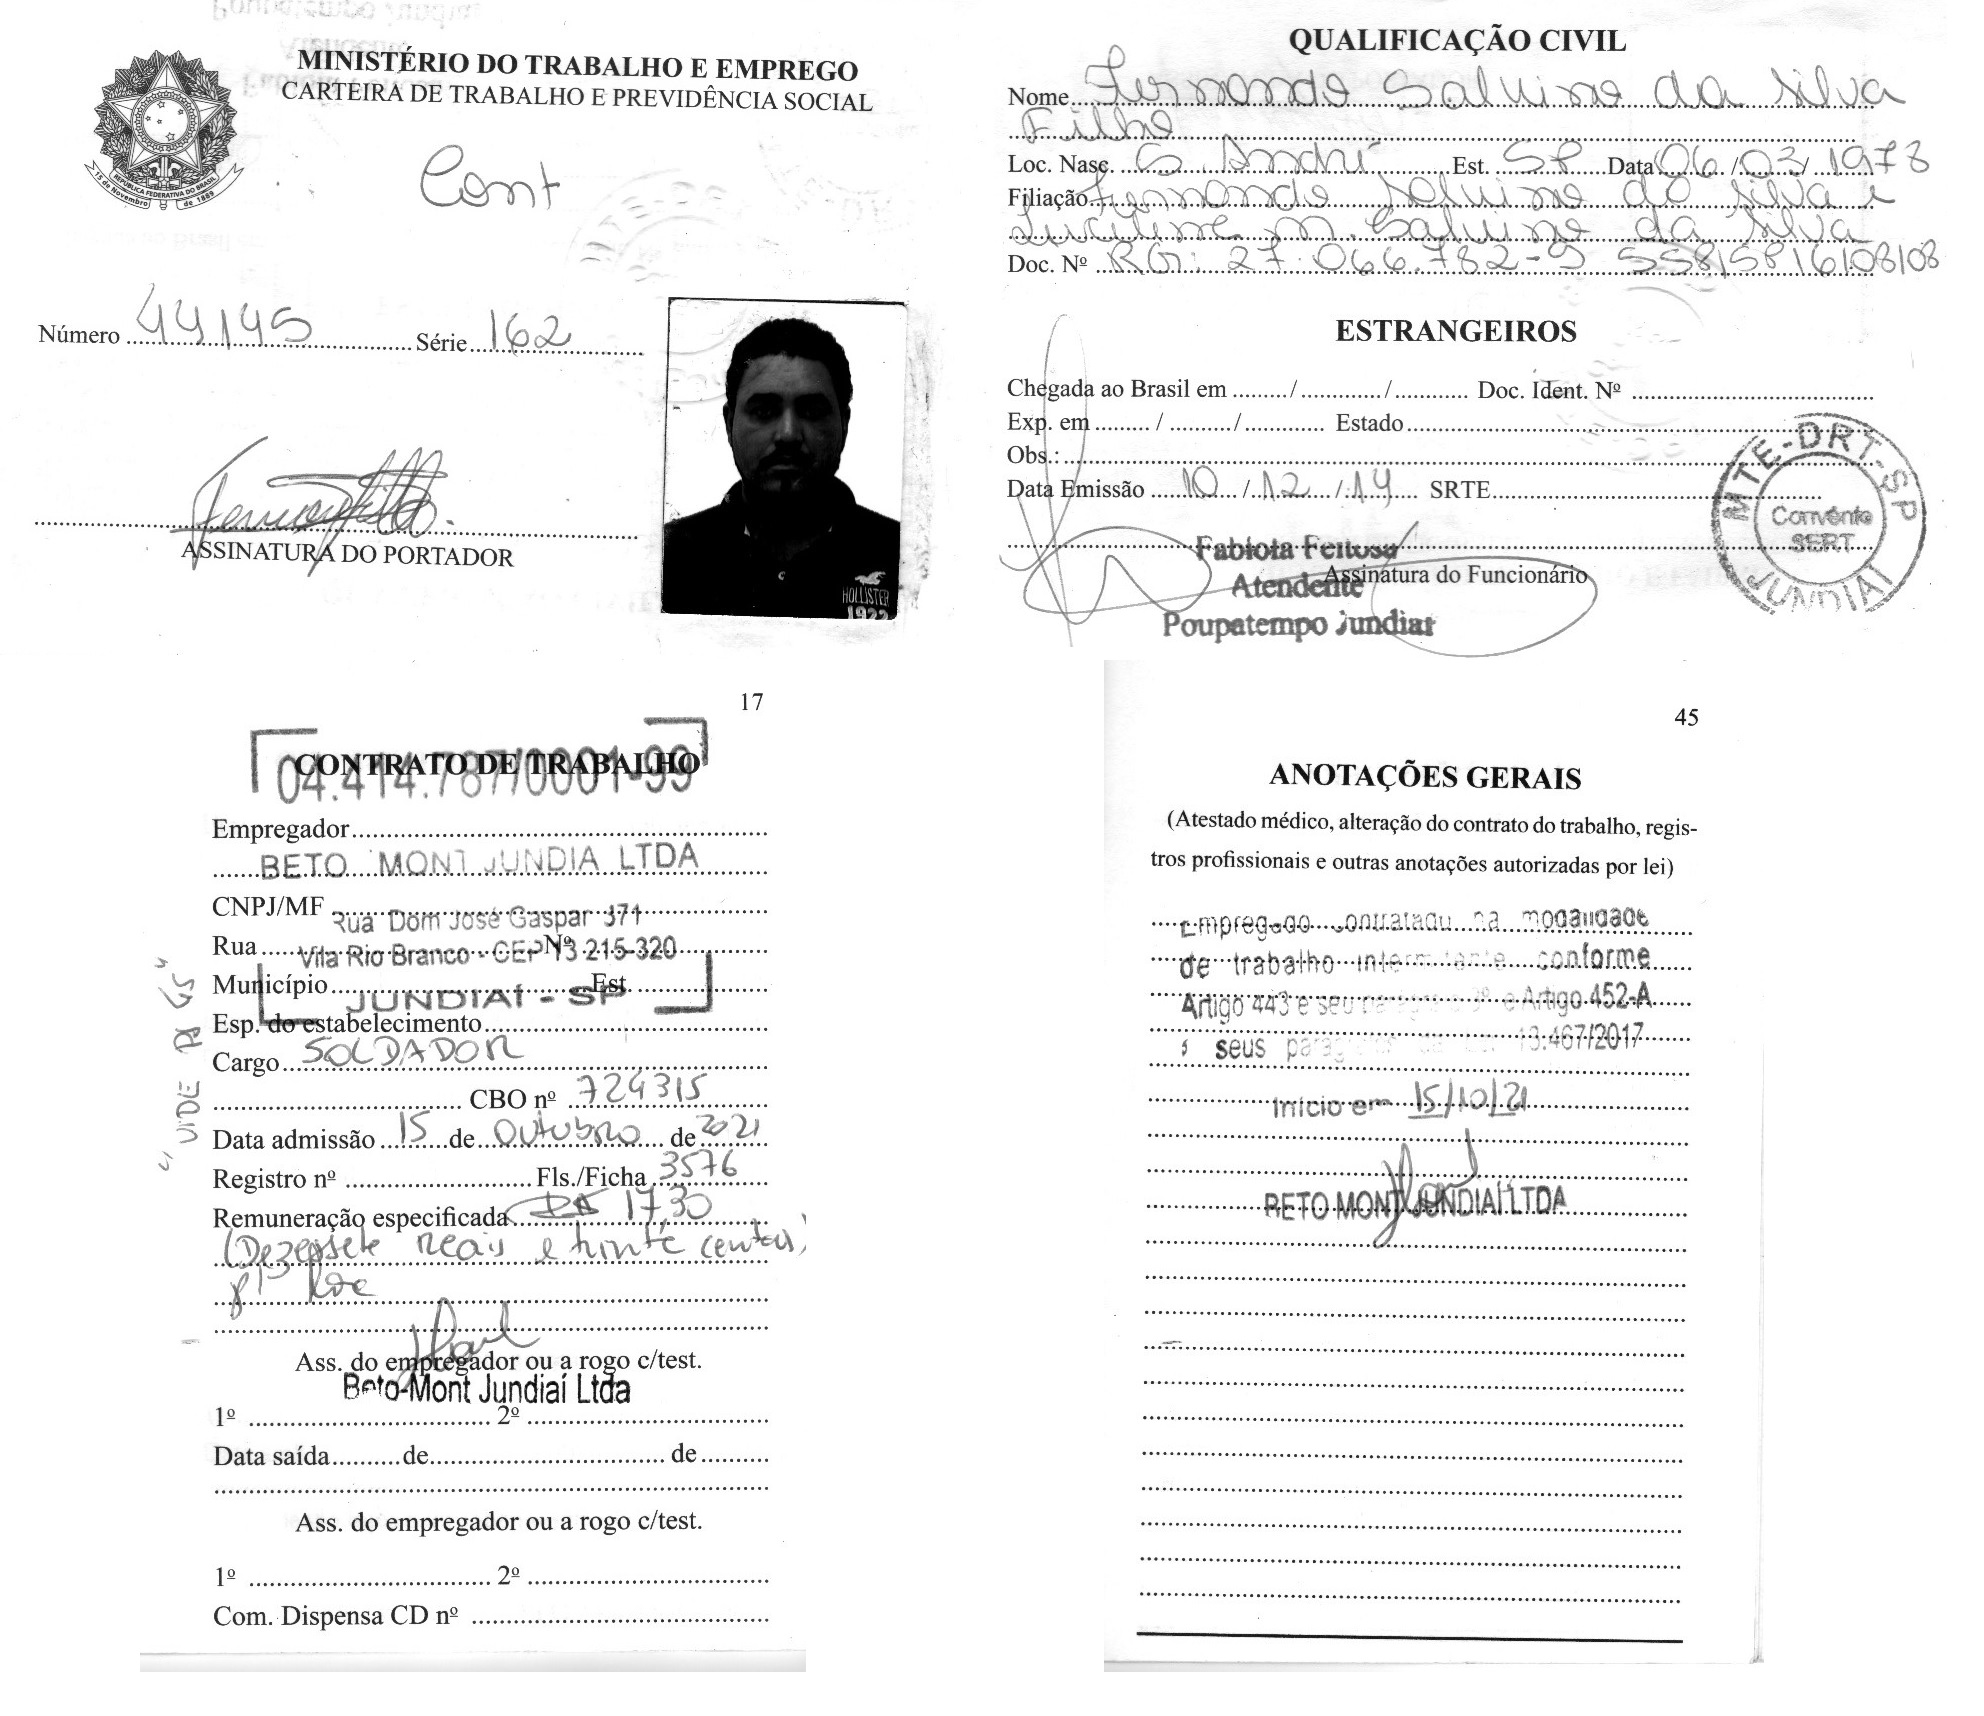 MINISTÉRIO DO TRABALHO E EMPREGO
CARTEIRA DE TRABALHO E PREVIDÊNCIA SOCIAL
REPÚBLICA FEDERATIVA DO BRASIL
15 de Novembro de 1889
Cont
Número 44145 Série 162
ASSINATURA DO PORTADOR
HOLLISTER
1922
QUALIFICAÇÃO CIVIL
Nome Fernando Saluino da Silva
Filho
Loc. Nasc. S. André Est. SP Data 06/03/1978
Filiação Fernando Saluino da Silva e
M. Saluino da Silva
Doc. Nº RG: 27.066.782-9 SSP/SP 16/08/08
ESTRANGEIROS
Chegada ao Brasil em / / Doc. Ident. Nº
Exp. em / / Estado
Obs.:
Data Emissão 10/12/14 SRTE
MTE-DRT-SP
Convênio
SERT
JUNDIAÍ
Fabiola Feitosa
Assinatura do Funcionário
Atendente
Poupatempo Jundiaí
17
CONTRATO DE TRABALHO
04.414.787/0001-99
Empregador
BETO MONT JUNDIA LTDA
CNPJ/MF
Rua Dom José Gaspar 371
Rua Nº
Vila Rio Branco - CEP 13 215-320
Município Est.
JUNDIAÍ - SP
Esp. do estabelecimento
Cargo SOLDADOR
CBO nº 724315
Data admissão 15 de OUTUBRO de 2021
Registro nº Fls./Ficha 3576
Remuneração especificada R$ 17,30
(Dezessete reais e trinta centavos)
p/
Ass. do empregador ou a rogo c/test.
Beto-Mont Jundiaí Ltda
1º 2º
Data saída de de
Ass. do empregador ou a rogo c/test.
1º 2º
Com. Dispensa CD nº
"VIDE PG 45"
45
ANOTAÇÕES GERAIS
(Atestado médico, alteração do contrato do trabalho, regis-
tros profissionais e outras anotações autorizadas por lei)
Empregado contratado na modalidade
de trabalho intermitente conforme
Artigo 443 e seu parágrafo 3º e Artigo 452-A
e seus parágrafos da Lei 13.467/2017
Início em 15/10/21
BETO MONT JUNDIAÍ LTDA